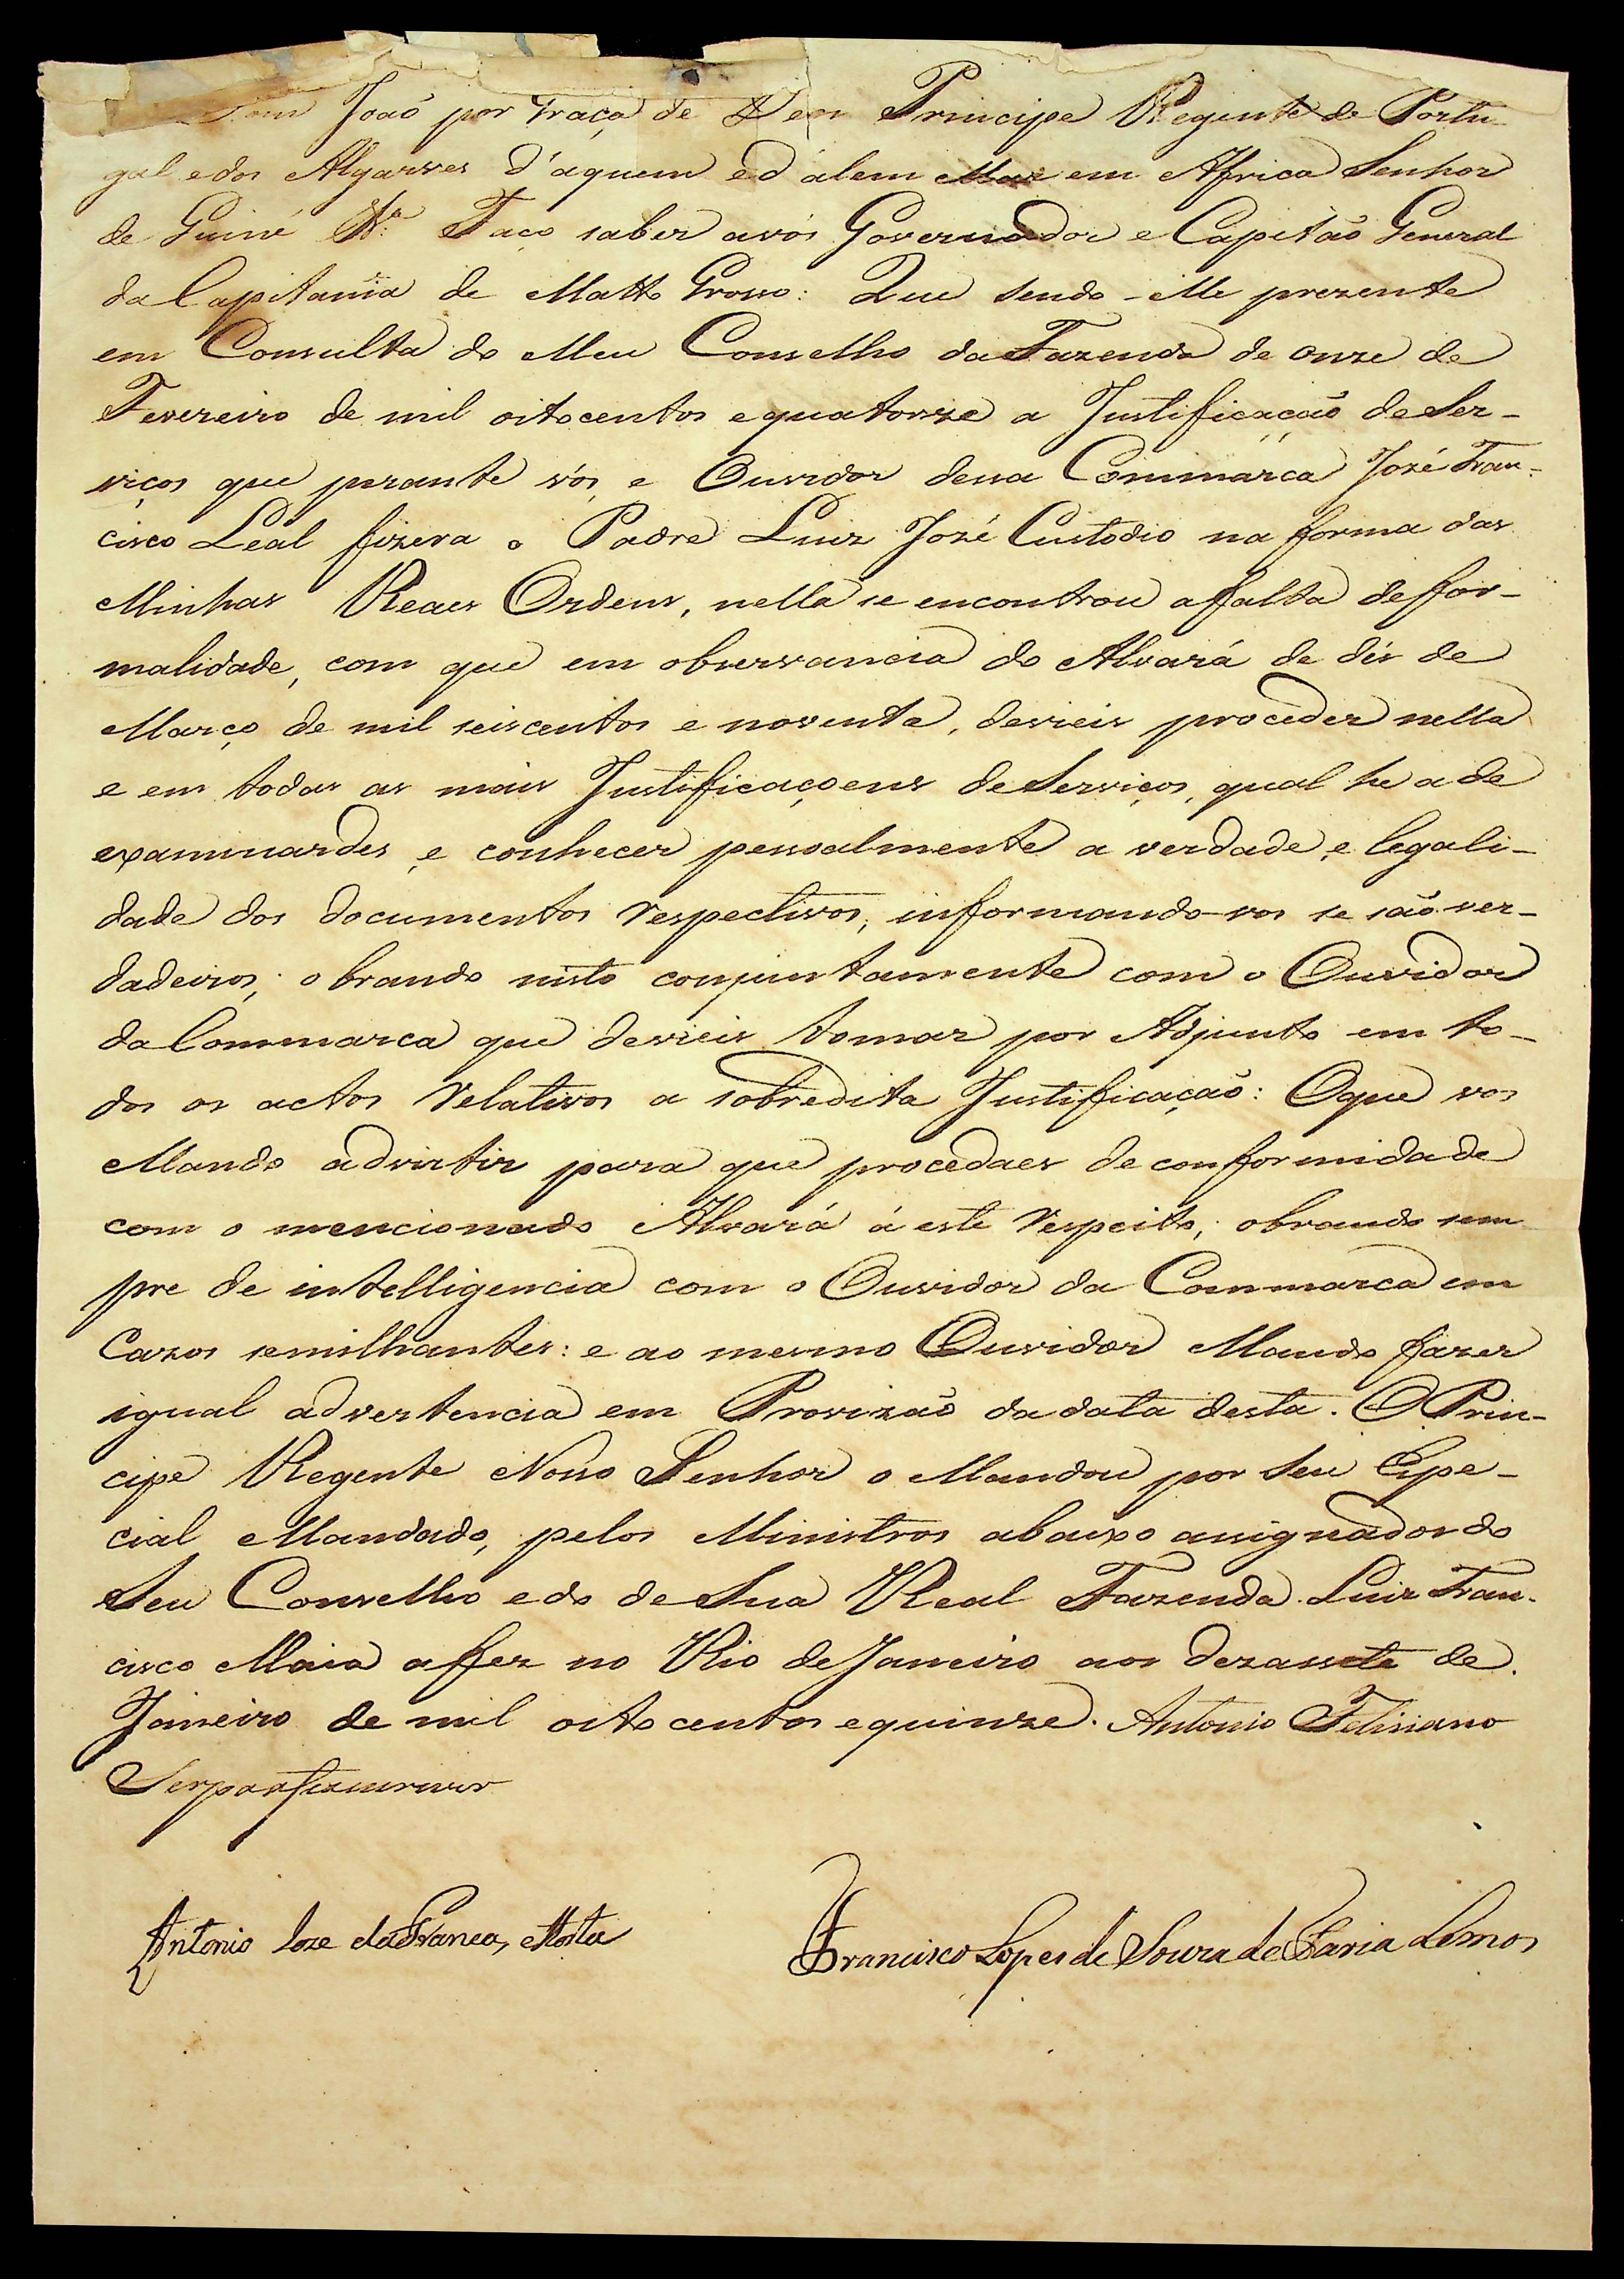 Dom João por Graça de Deos Principe Regente de Portu-
gal e dos Algarves d'aquem e d'alem Mar em Africa Senhor
de Guiné &ª. Faço saber a vós Governador e Capitão General
da Capitania de Matto Grosso: Que sendo-Me prezente
em Consulta do Meu Conselho da Fazenda de onze de
Fevereiro de mil oitocentos e quatorze a Justificação de Ser-
viços que perante vós, e Ouvidor dessa Commarca José Fran-
cisco Leal fizera o Padre Luiz José Custodio na forma das
Minhas Reaes Ordens, nella se encontrou a falta de for-
malidade, com que em observancia do Alvará de dés de
Março de mil seiscentos e noventa, devieis proceder nella
e em todas as mais Justificaçoens de Serviços, qual he a de
examinardes, e conhecer pessoalmente a verdade, e legali-
dade dos documentos respectivos, informando-vos se são ver-
dadeiros; obrando nisto conjuntamente com o Ouvidor
da Commarca que devieis tomar por Adjunto em to-
dos os actos relativos a sobredita Justificação: O que vos
Mando advirtir para que procedaes de conformidade
com o mencionado Alvará á este respeito; obrando sem
pre de intelligencia com o Ouvidor da Commarca em
Cazos semilhantes: e ao mesmo Ouvidor Mando fazer
igual advertencia em Provizão da data desta. O Prin-
cipe Regente Nosso Senhor o Mandou por Seu Espe-
cial Mandado, pelos Ministros abaixo assignados do
Seu Conselho e do de Sua Real Fazenda. Luiz Fran-
cisco Maia a fez no Rio de Janeiro aos dezassete de
Janeiro de mil oitocentos e quinze. Antonio Feliciano
Serpa a fez escrever
Antonio Joze da Franca, e Horta
Francisco Lopes de Souza de Faria Lemos